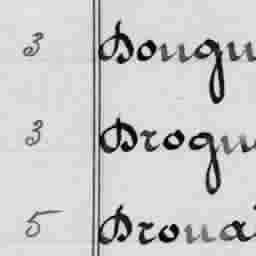 3 Dougu
3 Drogu
5 Droua